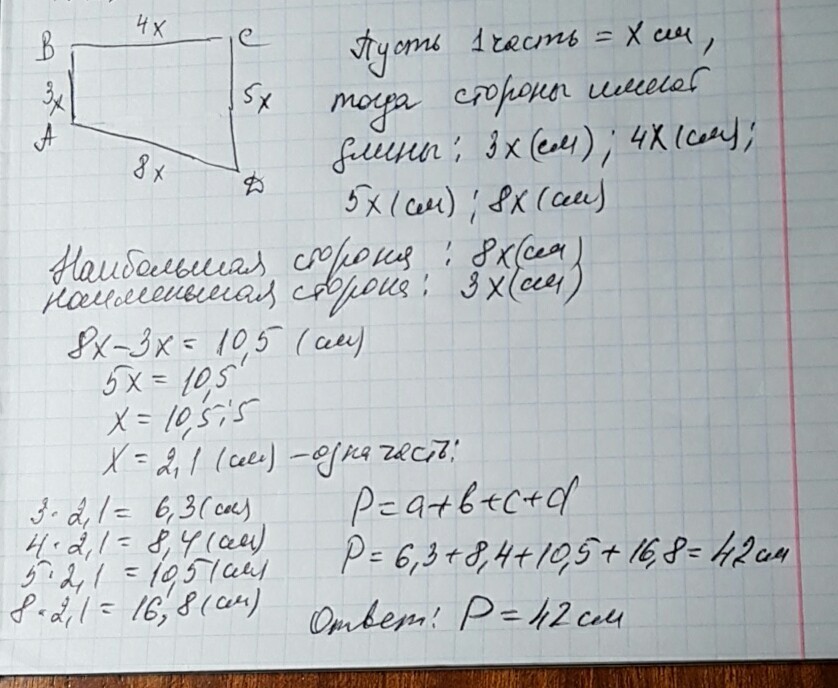 4x
B
C
3x
5x
A
8x
D
Пусть 1 часть = x см,
тогда стороны имеют
длины: 3x (см); 4x (см);
5x (см); 8x (см)
Наибольшая сторона: 8x (см)
наименьшая сторона: 3x (см)
8x-3x = 10,5 (см)
5x = 10,5
x = 10,5:5
x = 2,1 (см) - одна часть:
3·2,1 = 6,3 (см)
4·2,1 = 8,4 (см)
5·2,1 = 10,5 (см)
8·2,1 = 16,8 (см)
P = a+b+c+d
P = 6,3+8,4+10,5+16,8 = 42 см
Ответ: P = 42 см